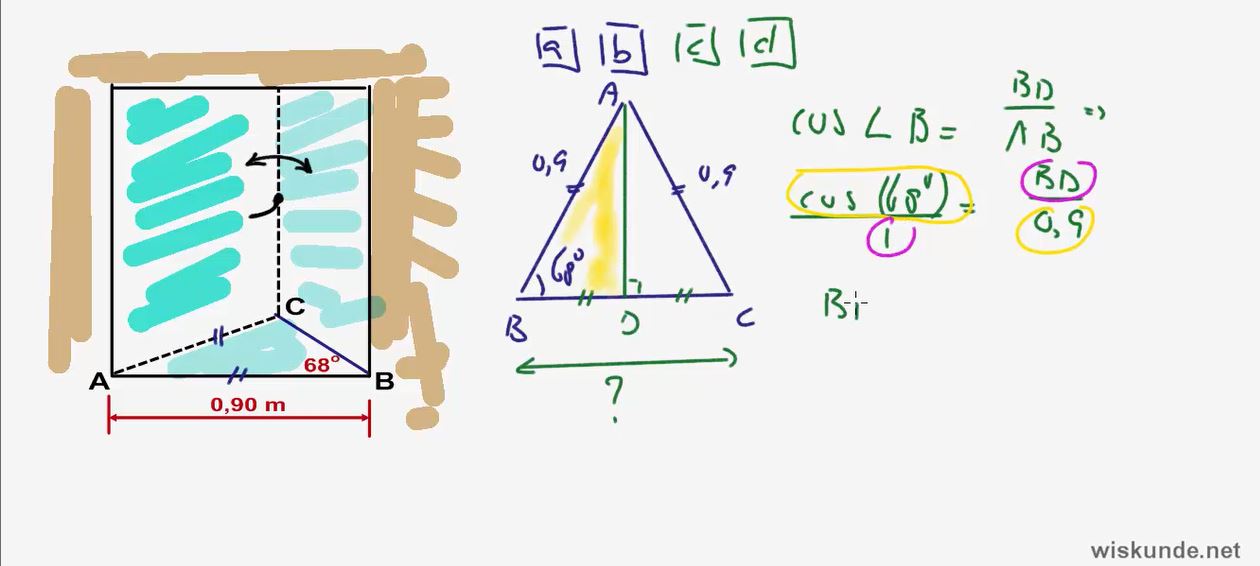 a b c d
A
0,9 0,9
68°
B D C
?
cos ∠ B = BD / AB =>
cos (68°) / 1 = BD / 0,9
C
68°
A B
0,90 m
wiskunde.net